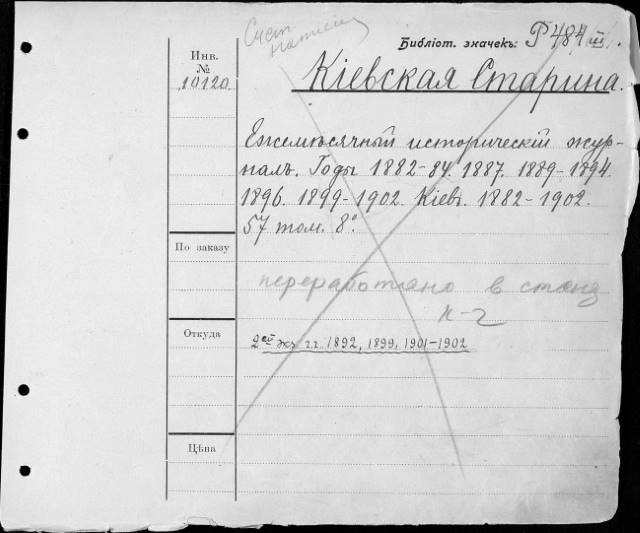 Счет.
написан
Библіот. значекъ: Р 484 III.
Инв.
№
10120
Кіевская Старина.
Ежемѣсячный историческій жур-
налъ. Годы 1882-84. 1887. 1889-1894.
1896. 1899-1902. Кіевъ. 1882-1902.
57 том. 8°.
По заказу
переработано в станд
к-г
Откуда
2ой экз. г.г. 1892, 1899, 1901-1902
Цѣна